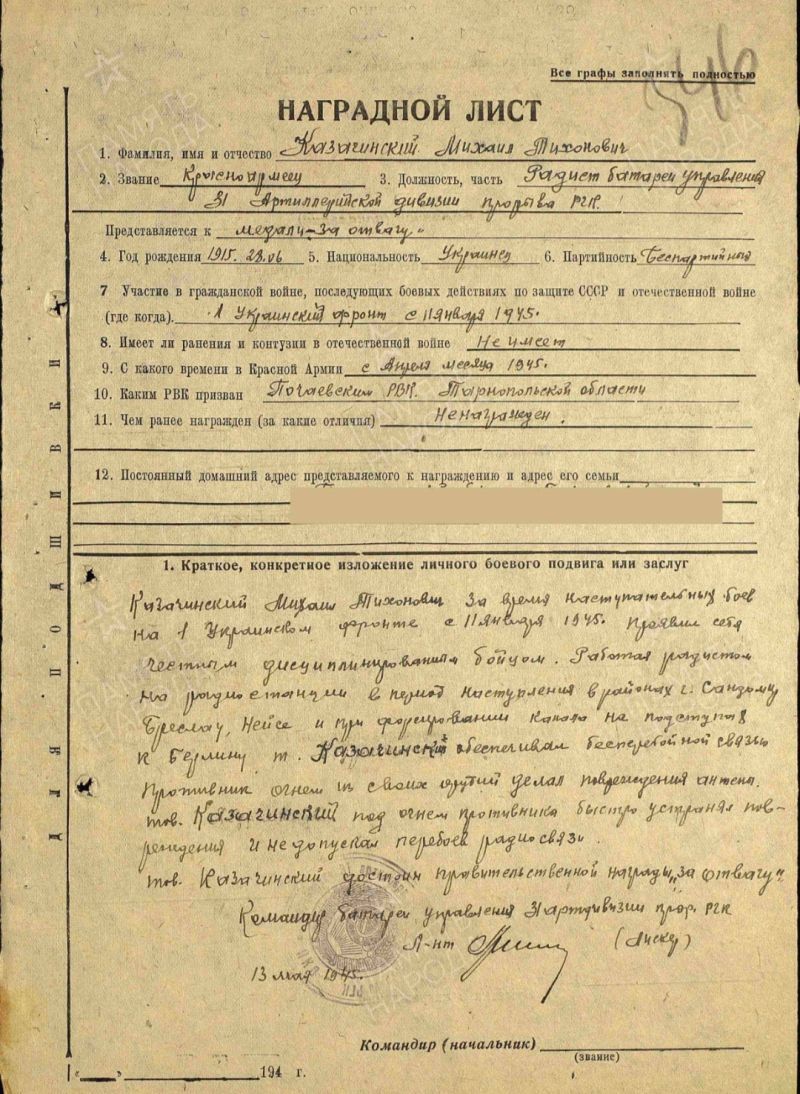 Все графы заполнять полностью
НАГРАДНОЙ ЛИСТ
1. Фамилия, имя и отчество Казачинский Михаил Тихонович
2. Звание Красноармеец 3. Должность, часть Радист батареи управления
31 Артиллерийской дивизии прорыва РГК.
Представляется к медали „За отвагу"
4. Год рождения 1915. 28.06 5. Национальность Украинец 6. Партийность Беспартийный
7 Участие в гражданской войне, последующих боевых действиях по защите СССР и отечественной войне
(где когда). 1 Украинский фронт с 11 января 1945.
8. Имеет ли ранения и контузии в отечественной войне Не имеет
9. С какого времени в Красной Армии с Апреля месяца 1945.
10. Каким РВК призван Почаевским РВК. Тарнопольской области
11. Чем ранее награжден (за какие отличия) Ненагражден.
12. Постоянный домашний адрес представляемого к награждению и адрес его семьи
1. Краткое, конкретное изложение личного боевого подвига или заслуг
Казачинский Михаил Тихонович за время наступательных боев
на 1 Украинском фронте с 11 января 1945. проявил себя
честным дисциплинированым бойцом. Работая радистом
на радиостанции в период наступления в районах г. Сандомир
Бреслау, Нейсе и при форсировании канала на подступах
к Берлину т. Казачинский обеспечивал бесперебойной связью
Противник огнем из своих орудий делал повреждения антена.
тов. Казачинский под огнем противника быстро устранял пов-
реждения и не допускал перебоев радиосвязи.
тов. Казачинский достоин правительственной награды „за отвагу"
Командир батареи управления 31 артдивизии прор. РГК
Л-нт (Лискер)
13 мая 1945.
Командир (начальник)
(звание)
« » 194 г.
ДЛЯ ПОДШИВКИ